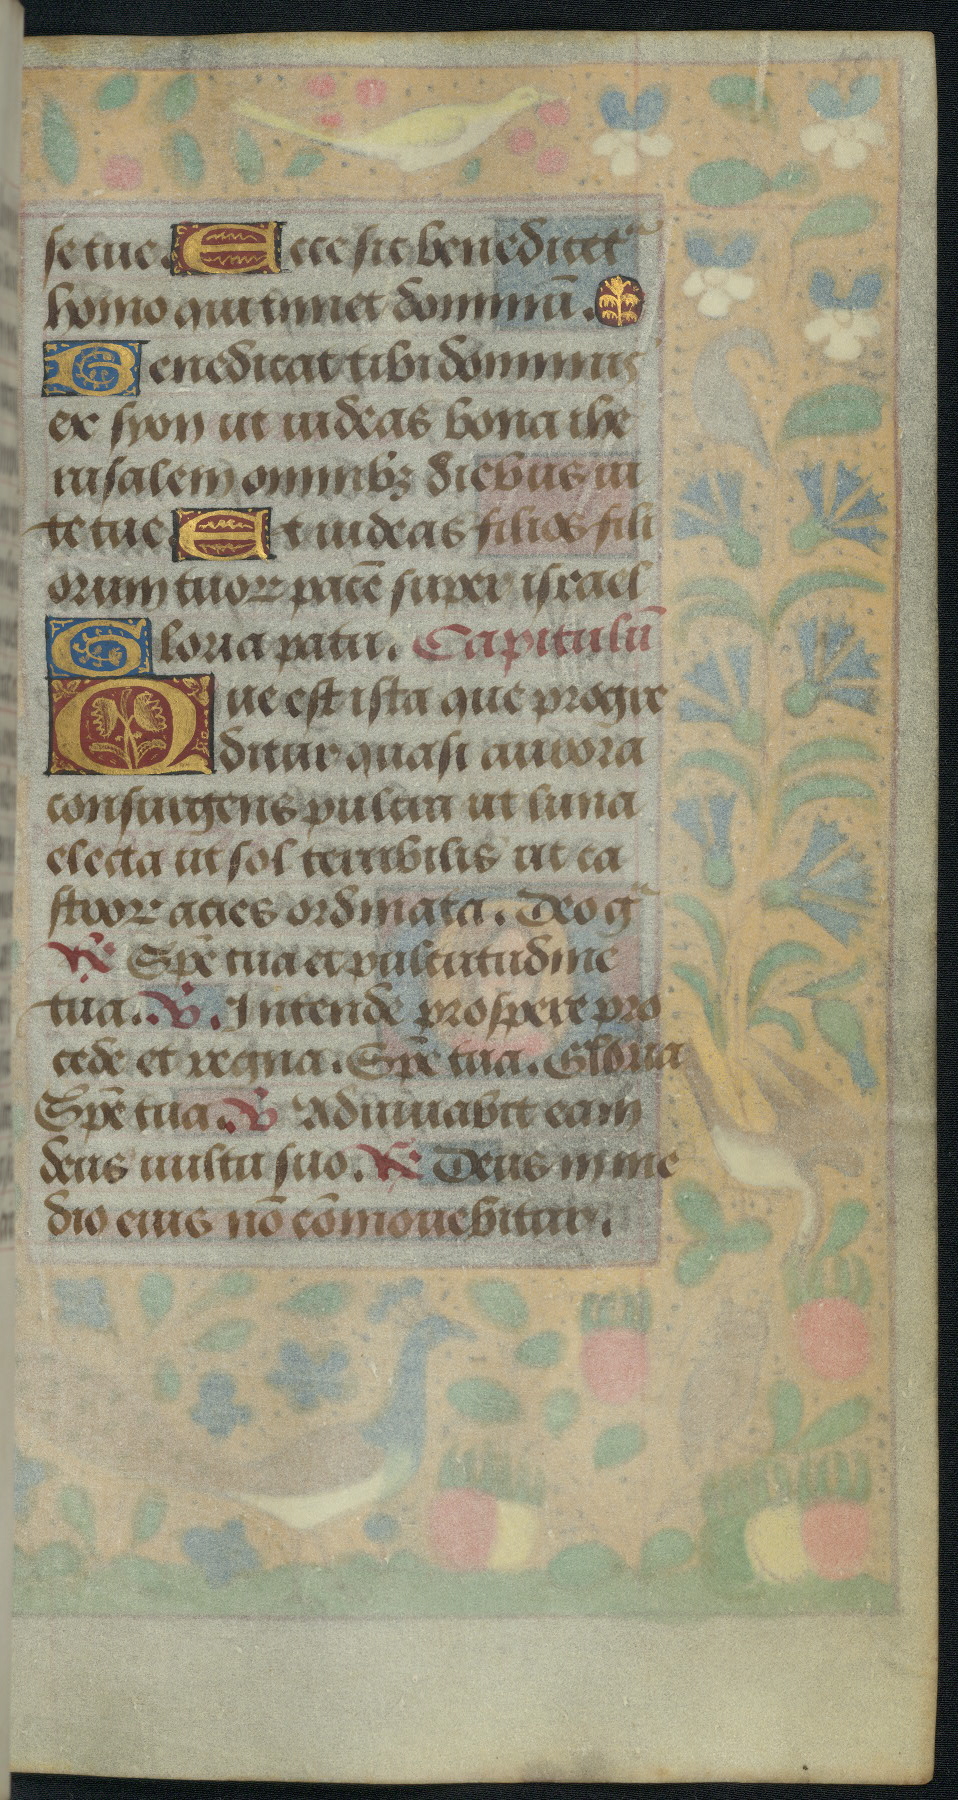 se tue. Ecce sic benedicet᷑
homo qui timet dominū.
Benedicat tibi dominus
ex syon ut uideas bona ihe
rusalem omnibꝫ diebus ui
te tue Et uideas filios fili
orum tuoꝝ pacē super israel
Gloria patri. Capitulū
Que est ista que progre
ditur quasi aurora
consurgens pulcra ut luna
electa ut sol terribilis ut ca
stroꝝ acies ordinata. Deo gͣ
℟ Spē tua et pulcritudine
tua. ℣. Intende prospere pro
cede et regna. Spē tua. Gloria
Spē tua. ℣ Adiuuabit eam
deus uultu suo. ℟ Deus in me
dio eius nō cōmouebitur.